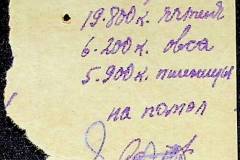 19.800к. ячменя
6.200к. овса
5.900к. пшеницы
на помол